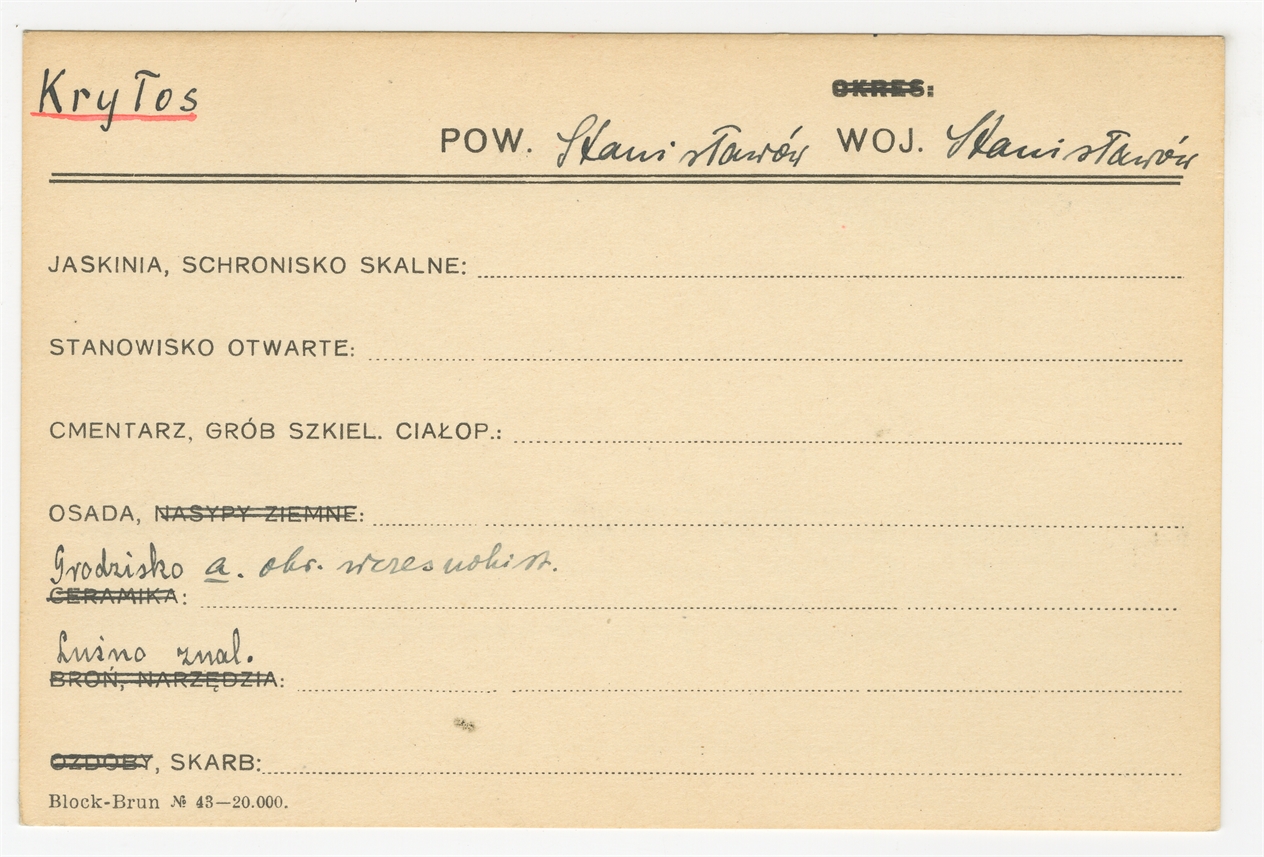 Kryłos
OKRES:
POW. Stanisławów WOJ. Stanisławów
JASKINIA, SCHRONISKO SKALNE:
STANOWISKO OTWARTE:
CMENTARZ, GRÓB SZKIEL. CIAŁOP.:
OSADA, NASYPY ZIEMNE:
Grodzisko a. okr. wczesnohist.
CERAMIKA:
Luźno znal.
BROŃ, NARZĘDZIA:
OZDOBY, SKARB:
Block-Brun № 43—20.000.